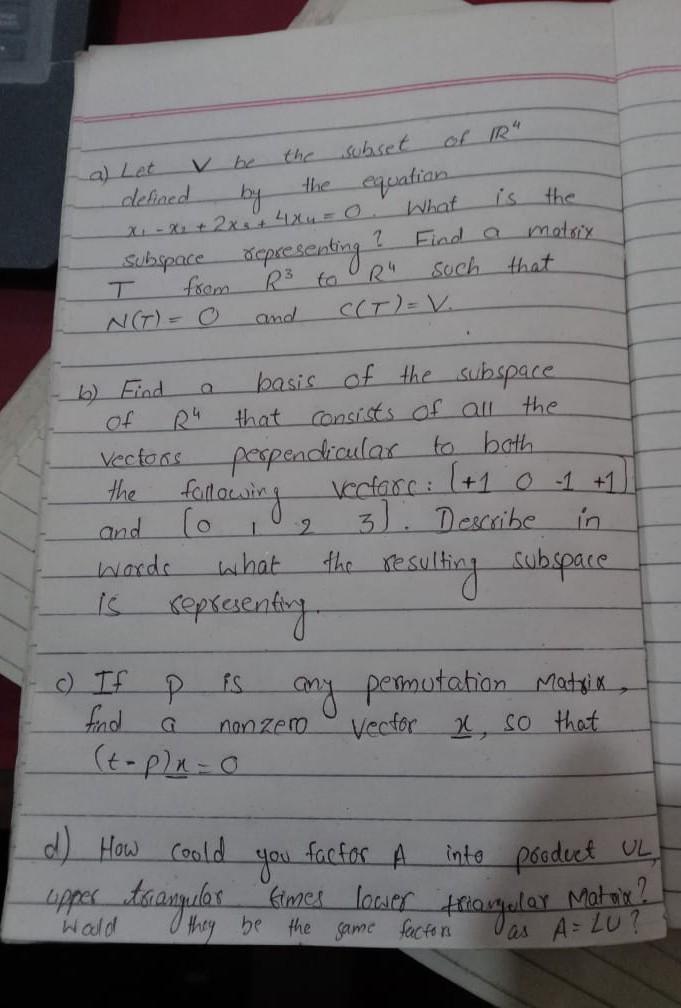 a) Let V be the subset of R⁴
defined by the equation
x₁ - x₂ + 2x₃ + 4x₄ = 0. What is the
subspace representing? Find a matrix
T from R³ to R⁴ such that
N(T) = 0 and C(T) = V.
b) Find a basis of the subspace
of R⁴ that consists of all the
vectors perpendicular to both
the following vectors: [+1 0 -1 +1]
and [0 1 2 3]. Describe in
words what the resulting subspace
is representing.
c) If P is any permutation Matrix,
find a nonzero vector x, so that
(t - p)x = 0
d) How could you factor A into product UL,
upper triangular times lower triangular Matrix?
Would they be the same factors as A = LU?